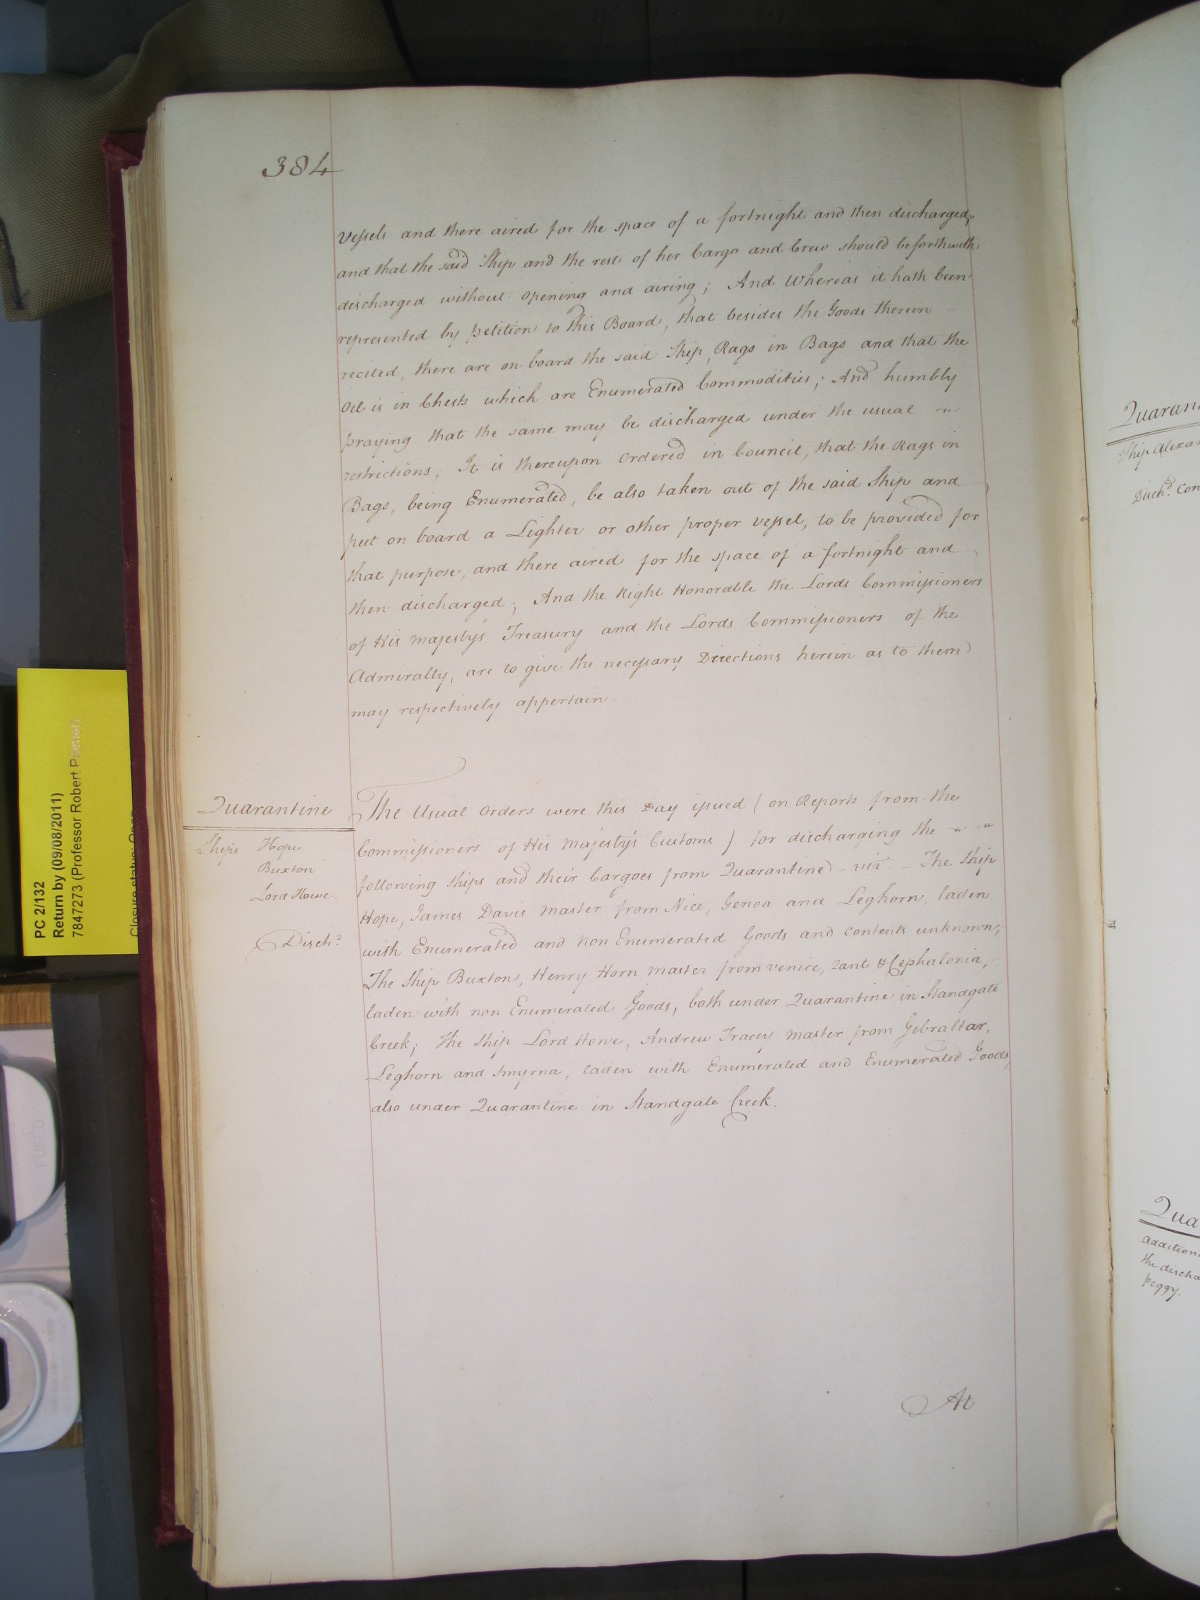 384
Vessels and there aired for the space of a fortnight and then discharged,
and that the said Ship and the rest of her Cargo and Crew should be forthwith
discharged without opening and airing; And Whereas it hath been
represented by petition to this Board, that besides the Goods therein
recited, there are on board the said Ship, Rags in Bags and that the
Oil is in Chests which are Enumerated Commodities; And humbly
praying that the same may be discharged under the usual
restrictions; It is thereupon Ordered in Council, that the Rags in
Bags, being Enumerated, be also taken out of the said Ship and
put on board a Lighter or other proper vessel, to be provided for
that purpose, and there aired for the space of a fortnight and
then discharged; And the Right Honorable the Lords Commissioners
of His Majesty's Treasury and the Lords Commissioners of the
Admiralty, are to give the necessary Directions herein as to them
may respectively appertain.
Quarantine
Ships Hope
Buxton
Lord Howe.
Disch.d
The Usual Orders were this Day issued (on Reports from the
Commissioners of His Majesty's Customs) for discharging the
following Ships and their Cargoes from Quarantine - viz.t - The Ship
Hope, James Davis Master from Nice, Genoa and Leghorn, laden
with Enumerated and non Enumerated Goods and contents unknown;
The Ship Buxton, Henry Horn Master from Venice, Zant & Cephalonia,
laden with non Enumerated Goods, both under Quarantine in Standgate
Creek; The Ship Lord Howe, Andrew Tracey Master from Gibraltar,
Leghorn and Smyrna, laden with Enumerated and Enumerated Goods,
also under Quarantine in Standgate Creek.
At
PC 2/132
Return by (09/08/2011)
7847273 (Professor Robert
Closure status: Open
Quaran
Ship Alexa
Disch.d Con
Qua
addition
the discha
Peggy.